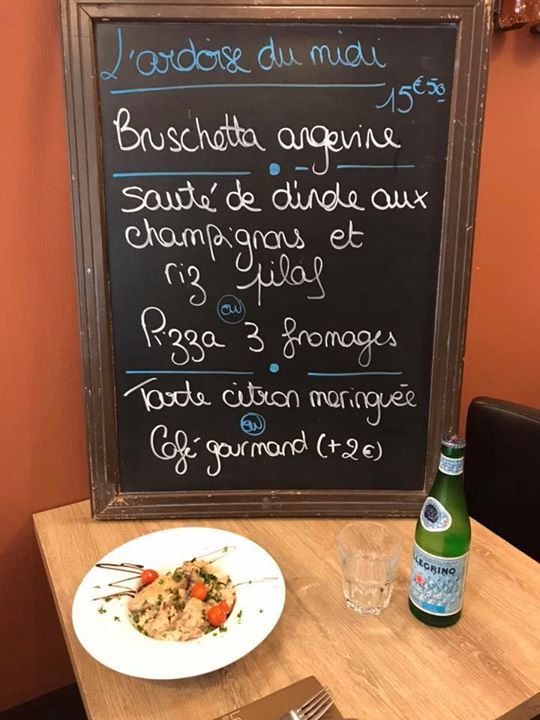 L'ardoise du midi
15€50
Bruschetta angevine
sauté de dinde aux
champignons et
riz pilaf
ou
Pizza 3 fromages
Tarte citron meringuée
ou
Café gourmand (+2€)
PELLEGRINO